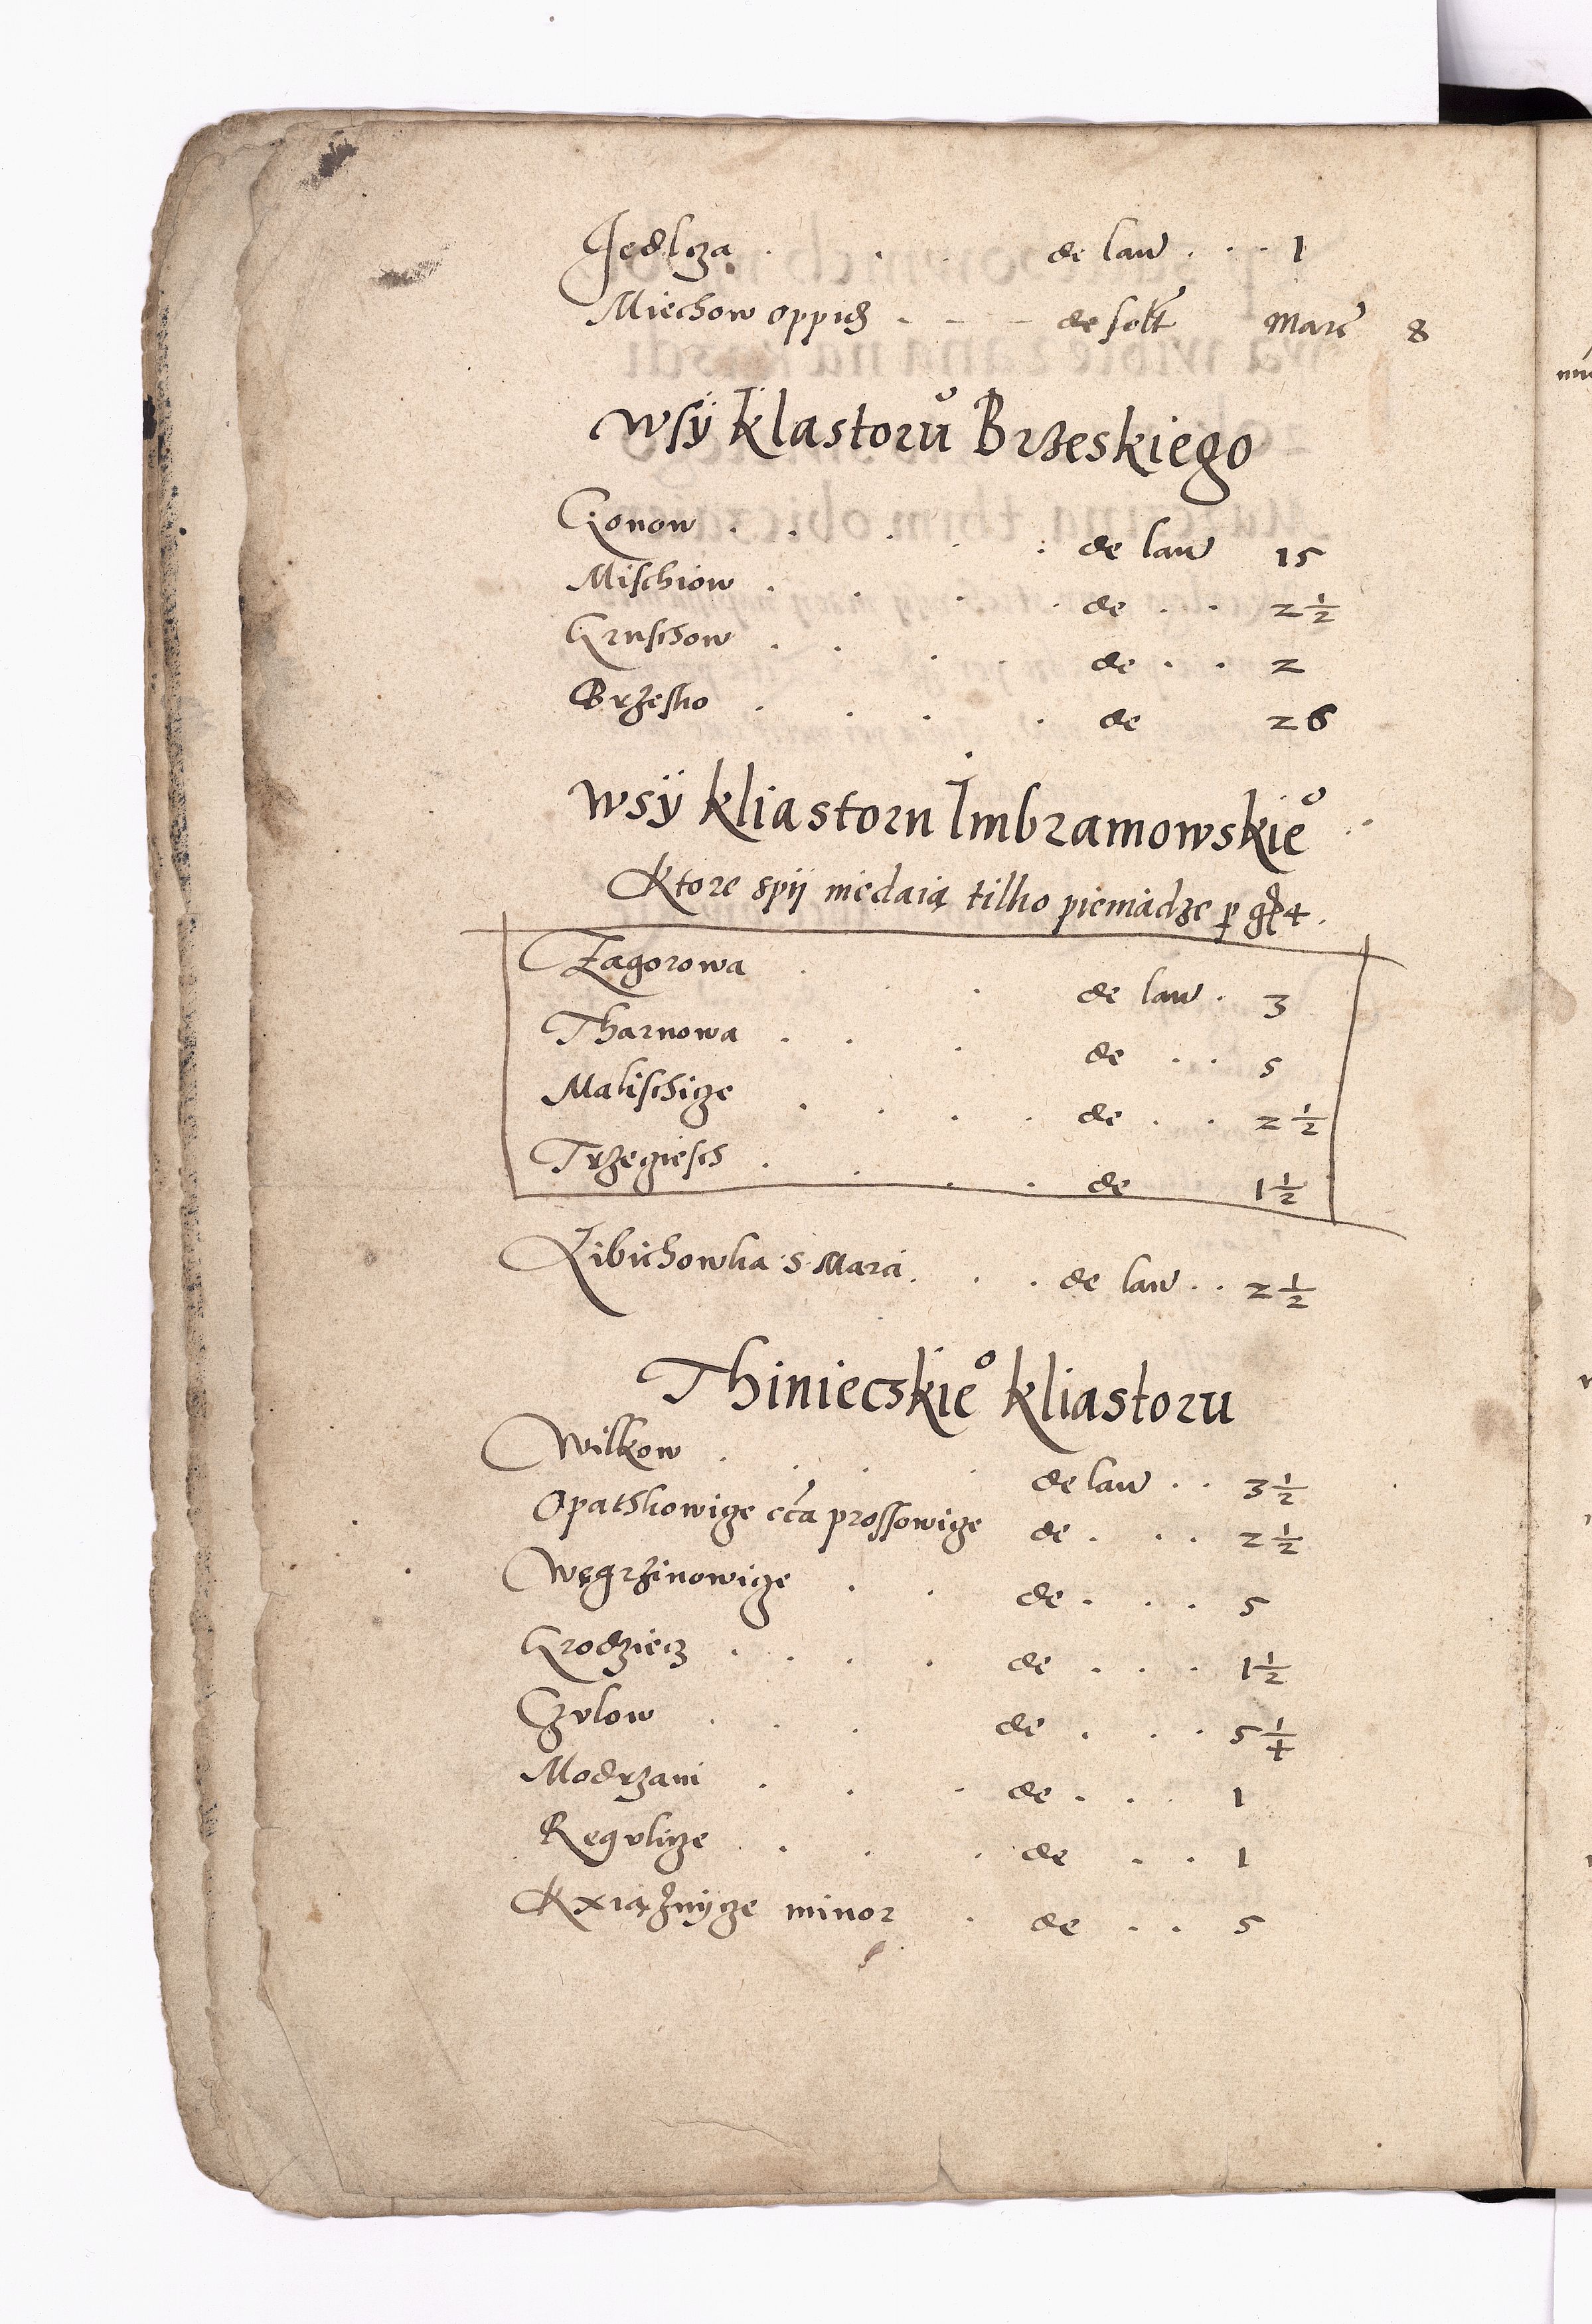 Jedlcza . . . de lan̄ . . . 1
Miechow oppid̄ - - - de solt̄ Marc̄ 8
wsÿ klastorů Brzeskiego
Czonow . . . . : de lan̄ 15
Mischiow . . . . de . . 2 1/2
Gruschow . . . . de . . 2
Brzesko . . . . de 26
wsÿ kliastoru Imbramowskie°
Ktore spij niedaią tilko pieniądze p gr 4.
Zagorowa . . . de lan̄ . 3
Tharnowa . . . de . . 5
Malischicze . . . . de . . 2 1/2
Trzeciesch . . . . de 1 1/2
Zibichowka S. Mara . . . de lan̄ . . 2 1/2
Thinieczskie° kliastoru
Wilkow . . . . de lan̄ . . 3 1/2
Opathkowicze cc̄a prossowicze de . . . 2 1/2
Węgrzinowicze . . de . . . 5
Grodziecz . . . . de . . . 1 1/2
Czvlow . . . de . . . 5 1/4
Modrzani . . . de . . . 1
Regvlicze . . . . de . . 1
Kxiążnycze minor . de . . 5